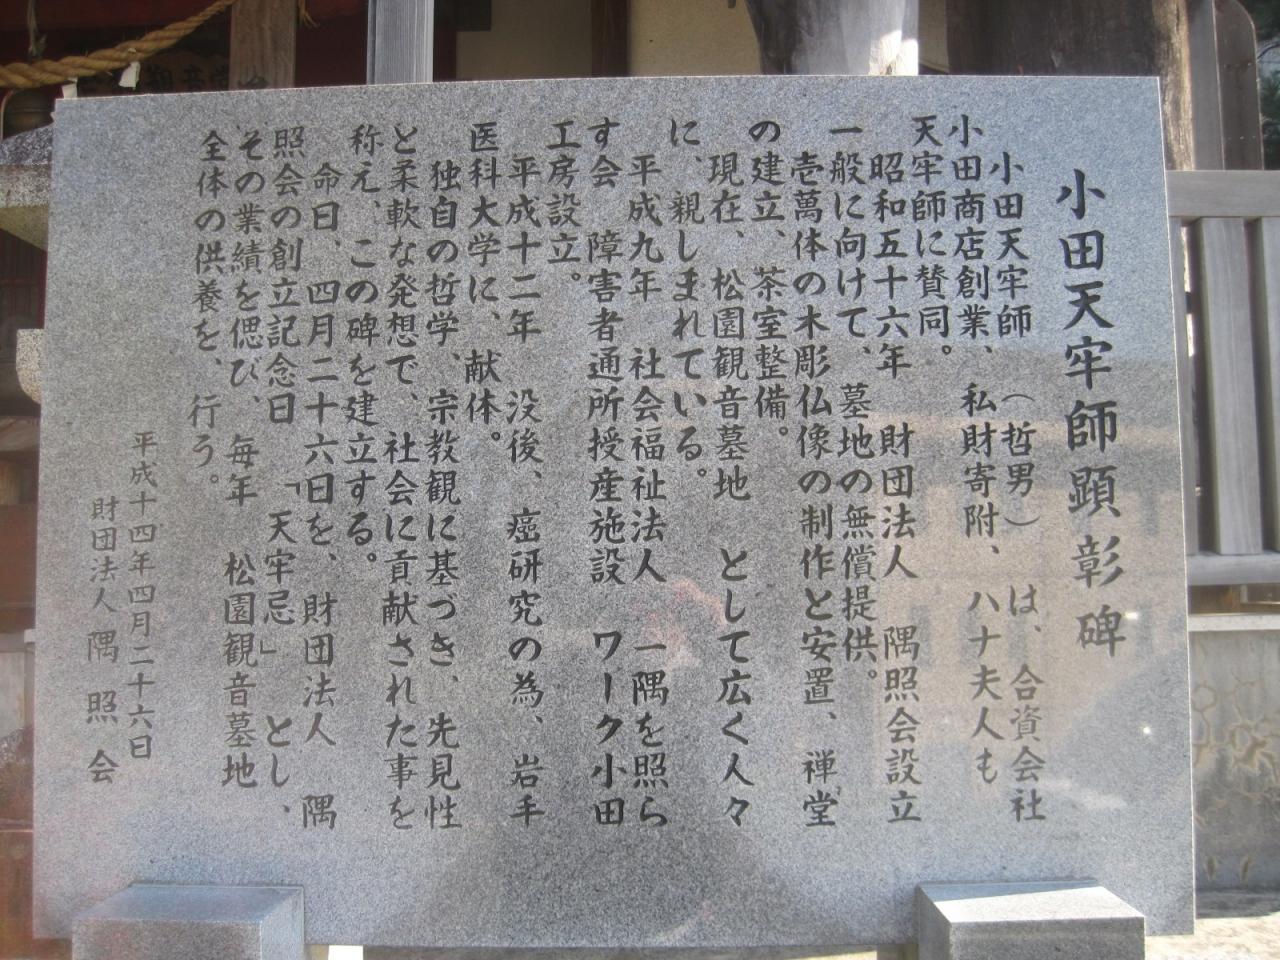 小田天牢師顕彰碑
小田天牢師　（哲男）　は、合資会社
小田商店創業、私財寄附、ハナ夫人も
天牢師に賛同。
昭和五十六年　財団法人　隅照会設立
一般に向けて、墓地の無償提供。
壱萬体の木彫仏像の制作と安置、禅堂
の建立、茶室整備。
現在、松園観音墓地　として広く人々
に、親しまれている。
平成九年　社会福祉法人　一隅を照ら
す会　障害者通所授産施設　ワーク小田
工房設立。
平成十二年　没後、癌研究の為、岩手
医科大学に、献体。
独自の哲学、宗教観に基づき、先見性
と柔軟な発想で、社会に貢献された事を
称え、この碑を建立する。
命日、四月二十六日を、財団法人　隅
照会の創立記念日　「天牢忌」　とし、
その業績を偲び、毎年　松園観音墓地
全体の供養を、行う。
平成十四年四月二十六日
財団法人　隅照会